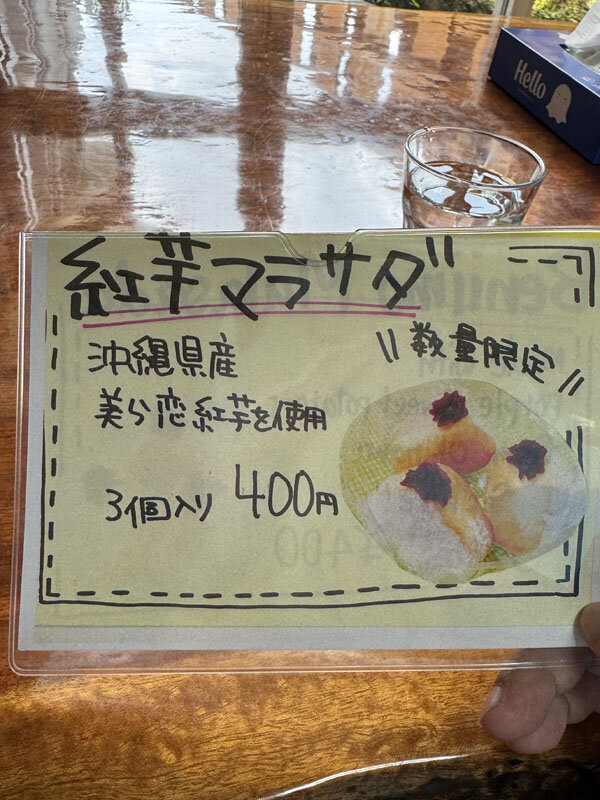 Hello
紅芋マラサダ
数量限定
沖縄県産
美ら恋紅芋を使用
3個入り 400円